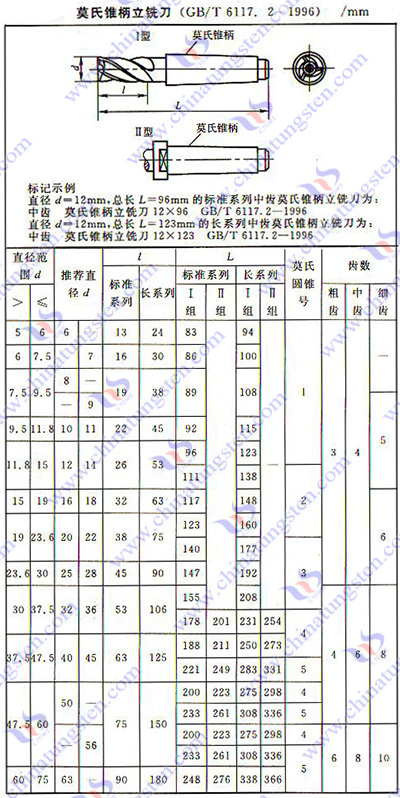 莫氏锥柄立铣刀(GB/T 6117.2—1996) /mm
Ⅰ型 莫氏锥柄
d
l
L
Ⅱ型 莫氏锥柄
标记示例
直径d=12mm,总长L=96mm的标准系列中齿莫氏锥柄立铣刀为:
中齿 莫氏锥柄立铣刀 12×96 GB/T 6117.2—1996
直径d=12mm,总长L=123mm的长系列中齿莫氏锥柄立铣刀为:
中齿 莫氏锥柄立铣刀 12×123 GB/T 6117.2—1996
直径范围d 推荐直径d l L 莫氏圆锥号 齿数
> ≤ 标准系列 长系列 标准系列 长系列 粗齿 中齿 细齿
Ⅰ组 Ⅱ组 Ⅰ组 Ⅱ组
5 6 6 — 13 24 83 94
6 7.5 — 7 16 30 86 100 —
7.5 9.5 8 — 19 38 89 108 1
— 9
9.5 11.8 10 11 22 45 92 115 5
11.8 15 12 14 26 53 96 123 3 4
111 — 138 —
15 19 16 18 32 63 117 148 2
19 23.6 20 22 38 75 123 160 6
140 177
23.6 30 25 28 45 90 147 192 3
30 37.5 32 36 53 106 155 208
178 201 231 254 4
37.5 47.5 40 45 63 125 188 211 250 273 4 6 8
221 249 283 331 5
47.5 60 50 — 75 150 200 223 275 298 4
233 261 308 336 5
— 56 200 223 275 298 4
233 261 308 336 5 6 8 10
60 75 63 — 90 180 248 276 338 366
www.chinatungsten.com